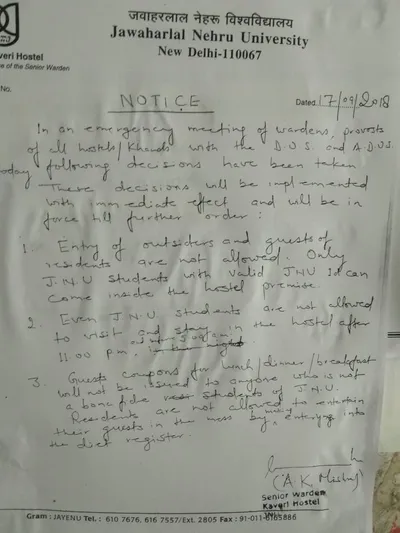 जवाहरलाल नेहरू विश्वविद्यालय
Jawaharlal Nehru University
New Delhi-110067
averi Hostel
ce of the Senior Warden
No.
NOTICE
Dated 17/09/2018
In an emergency meeting of wardens, provosts
of all hostels/Khands with the D.O.S. and A.D.OS.
oday following decisions have been taken
These decisions will be implemented
with immediate effect and will be in
force till further order:
1. Entry of outsiders and guests of
residents are not allowed. Only
J.N.U students with valid JNU Id can
come inside the hostel premise.
2. Even J.N.U. students are not allowed
to visit and stay in the hostel after
11.00 p.m.
3. Guests coupons for lunch/dinner/breakfast
will not be issued to anyone who is not
a bonafide students of J.N.U.
Residents are not allowed to entertain
their guests in the mess by making entry into
the diet register.
(A K Mishra)
Senior Warden
Kaveri Hostel
JNU
Gram : JAYENU Tel. : 610 7676, 616 7557/Ext. 2805 Fax : 91-011-6165886